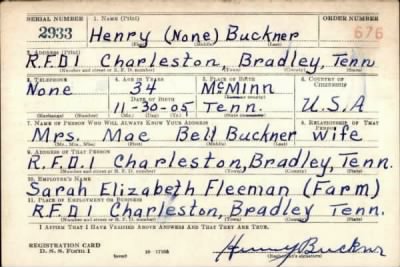 SERIAL NUMBER 1. NAME (Print) ORDER NUMBER
2933 Henry (None) Buckner 676
(First) (Middle) (Last)
2. ADDRESS (Print)
R.F.D.1 Charleston, Bradley, Tenn
(Number and street or R. F. D. number) (Town) (County) (State)
3. TELEPHONE 4. AGE IN YEARS 5. PLACE OF BIRTH 6. COUNTRY OF CITIZENSHIP
None 34 McMinn
DATE OF BIRTH
11-30-05 Tenn. U.S.A
(Exchange) (Number) (Mo.) (Day) (Yr.) (State or country)
7. NAME OF PERSON WHO WILL ALWAYS KNOW YOUR ADDRESS 8. RELATIONSHIP OF THAT PERSON
Mrs. Mae Bell Buckner Wife
(Mr., Mrs., Miss) (First) (Middle) (Last)
9. ADDRESS OF THAT PERSON
R.F.D.1 Charleston, Bradley, Tenn.
(Number and street or R. F. D. number) (Town) (County) (State)
10. EMPLOYER'S NAME
Sarah Elizabeth Fleeman (Farm)
11. PLACE OF EMPLOYMENT OR BUSINESS
R.F.D.1 Charleston, Bradley Tenn.
(Number and street or R. F. D. number) (Town) (County) (State)
I AFFIRM THAT I HAVE VERIFIED ABOVE ANSWERS AND THAT THEY ARE TRUE.
REGISTRATION CARD
D. S. S. Form 1 Henry Buckner
(over)